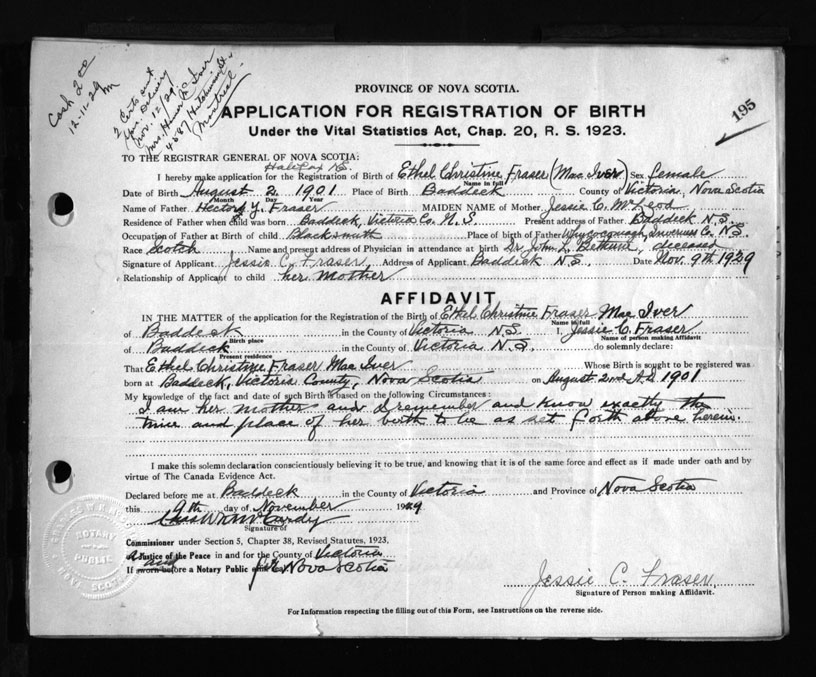 Cash 2.00
12-11-29
2 Certs sent
Nov. 12/29
Mrs. Mac Iver
4587 Hutchison St.
Montreal
195
PROVINCE OF NOVA SCOTIA.
APPLICATION FOR REGISTRATION OF BIRTH
Under the Vital Statistics Act, Chap. 20, R. S. 1923.
TO THE REGISTRAR GENERAL OF NOVA SCOTIA:
Halifax N.S.
I hereby make application for the Registration of Birth of Ethel Christine Fraser (Mac Iver) Sex female
Name in full
Date of Birth August 2 1901 Place of Birth Baddeck County of Victoria, Nova Scotia
Month Day Year
Name of Father Hector Y. Fraser MAIDEN NAME of Mother Jessie C. McLeod
Residence of Father when child was born Baddeck, Victoria Co. N.S. Present address of Father Baddeck N.S.
Occupation of Father at Birth of child Blacksmith Place of birth of Father Whycocomagh, Inverness Co. N.S.
Race Scotch Name and present address of Physician in attendance at birth Dr John L. Bethune, deceased
Signature of Applicant Jessie C. Fraser Address of Applicant Baddeck N.S. Date Nov. 9th 1929
Relationship of Applicant to child her Mother
AFFIDAVIT
IN THE MATTER of the application for the Registration of the Birth of Ethel Christine Fraser Mac Iver
Name in full
of Baddeck in the County of Victoria N.S. I, Jessie C. Fraser
Birth place Name of person making Affidavit
of Baddeck in the County of Victoria N.S. do solemnly declare:
Present residence
That Ethel Christine Fraser Mac Iver Whose Birth is sought to be registered was
born at Baddeck, Victoria County, Nova Scotia on August 2nd A.D. 1901
My knowledge of the fact and date of such Birth is based on the following Circumstances:
I am her mother and I remember and know exactly the
time and place of her birth to be as set forth above herein.
I make this solemn declaration conscientiously believing it to be true, and knowing that it is of the same force and effect as if made under oath and by
virtue of The Canada Evidence Act.
Declared before me at Baddeck in the County of Victoria and Province of Nova Scotia
this 9th day of November 1929
Signature of
Commissioner under Section 5, Chapter 38, Revised Statutes, 1923,
a Justice of the Peace in and for the County of Victoria
and
If sworn before a Notary Public for Nova Scotia
NOTARY
PUBLIC
Jessie C. Fraser
Signature of Person making Affidavit.
For Information respecting the filling out of this Form, see Instructions on the reverse side.